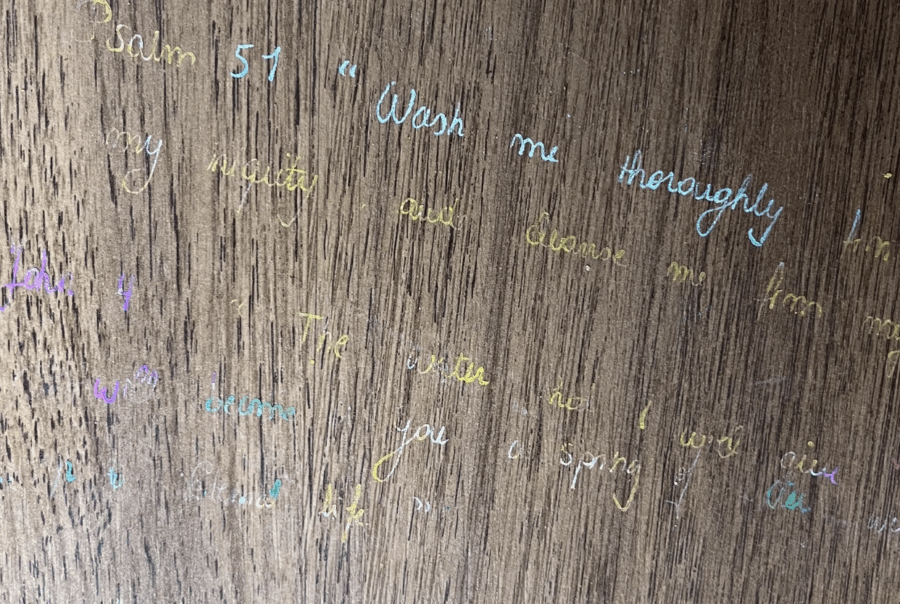 Psalm 51 " Wash me thoroughly
my iniquity and cleanse me from
John 4 " The water I will give
will become you a spring of
eternal life "